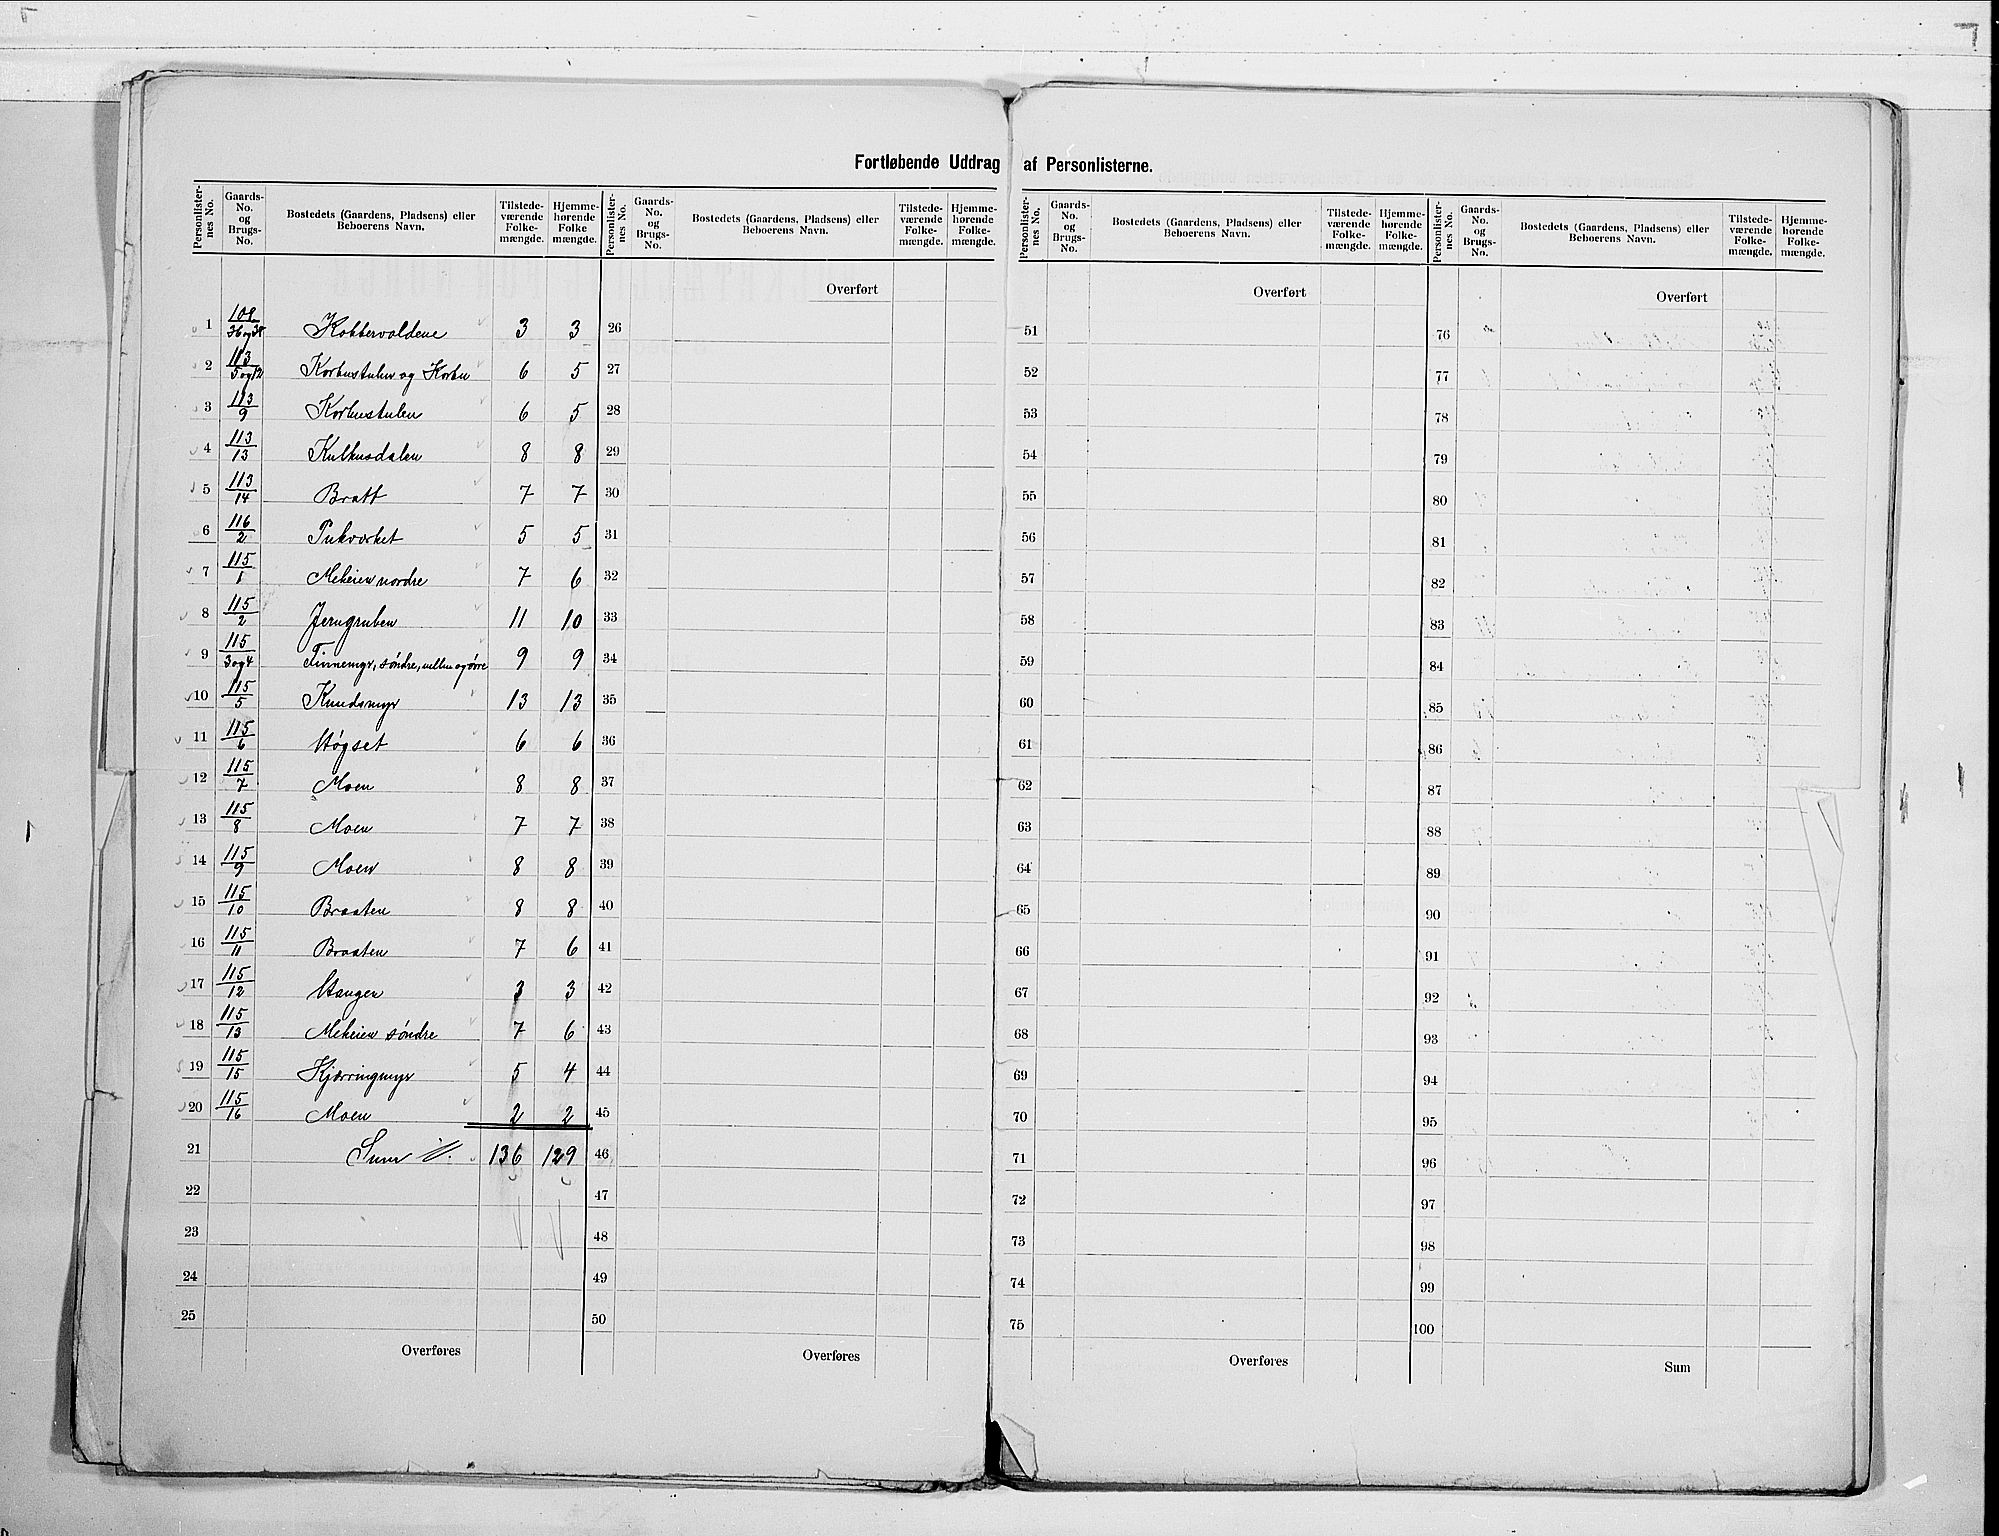 Fortløbende Uddrag af Personlisterne.
Personlister-nes No. Gaards-No. og Brugs-No. Bostedets (Gaardens, Pladsens) eller Beboerens Navn. Tilstede-værende Folke-mængde. Hjemme-hørende Folke mængde.
1 108/36 og 38 Kobbervoldene 3 3
2 113/5 og 12 Korhustulen og Korhu 6 5
3 113/9 Korhustulen 6 5
4 113/13 Kulhusdalen 8 8
5 113/14 Bratt 7 7
6 116/2 Pukværket 5 5
7 115/1 Meheien nordre 7 6
8 115/2 Jerngruben 11 10
9 115/3 og 4 Finnemyr, søndre, mellem og øvre 9 9
10 115/5 Knudsmyr 13 13
11 115/6 Høgset 6 6
12 115/7 Moen 8 8
13 115/8 Moen 7 7
14 115/9 Moen 8 8
15 115/10 Braaten 8 8
16 115/11 Braaten 7 6
17 115/12 Haugen 3 3
18 115/13 Meheien søndre 7 6
19 115/15 Kjærringmyr 5 4
20 115/16 Moen 2 2
21 Sum 136 129
22
23
24
25
Overføres
Personlister-nes No. Gaards-No. og Brugs-No. Bostedets (Gaardens, Pladsens) eller Beboerens Navn. Tilstede-værende Folke-mængde. Hjemme-hørende Folke-mængde.
Overført
26
27
28
29
30
31
32
33
34
35
36
37
38
39
40
41
42
43
44
45
46
47
48
49
50
Overføres
Personlister-nes No. Gaards-No. og Brugs-No. Bostedets (Gaardens, Pladsens) eller Beboerens Navn. Tilstede-værende Folke-mængde. Hjemme-hørende Folke-mængde.
Overført
51
52
53
54
55
56
57
58
59
60
61
62
63
64
65
66
67
68
69
70
71
72
73
74
75
Overføres
Personlister-nes No. Gaards-No. og Brugs-No. Bostedets (Gaardens, Pladsens) eller Beboerens Navn. Tilstede-værende Folke-mængde. Hjemme-hørende Folke-mængde.
Overført
76
77
78
79
80
81
82
83
84
85
86
87
88
89
90
91
92
93
94
95
96
97
98
99
100
Sum